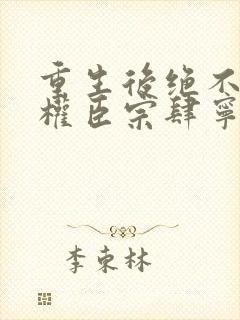 重生後绝不
權臣宗肆寧
李東林